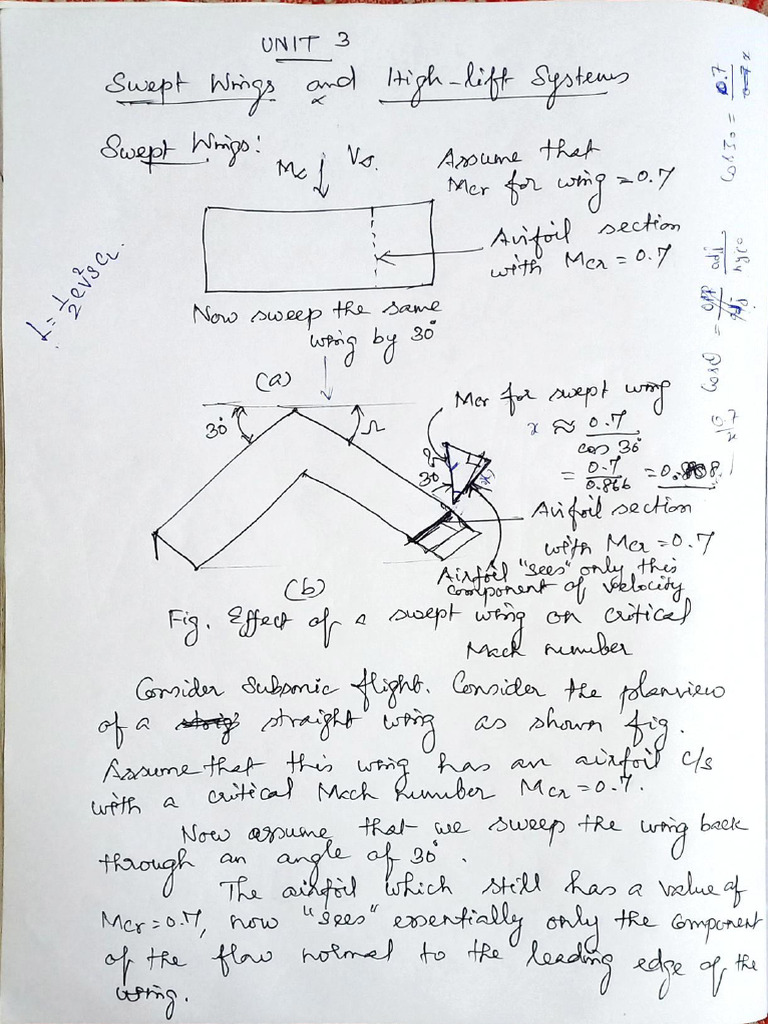 UNIT 3
Swept Wings and High-lift Systems
Swept Wings:
M∞ V∞
Assume that
Mcr for wing = 0.7
Airfoil section
with Mcr = 0.7
L = 1/2 ρV²SCL
Now sweep the same
wing by 30°
(a)
30° Ω
Mcr for swept wing
x ≈ 0.7 / cos 30°
= 0.7 / 0.866 = 0.808
30°
Airfoil section
with Mcr = 0.7
Airfoil "sees" only this
component of velocity
(b)
Fig. Effect of a swept wing on critical
Mach number
Consider Subsonic flight. Consider the planview
of a straight wing as shown fig.
Assume that this wing has an airfoil c/s
with a critical Mach number Mcr = 0.7.
Now assume that we sweep the wing back
through an angle of 30°.
The airfoil which still has a value of
Mcr = 0.7, now "sees" essentially only the component
of the flow normal to the leading edge of the
wing.
cos θ = adj / hyp
cos 30 = 0.7 / x